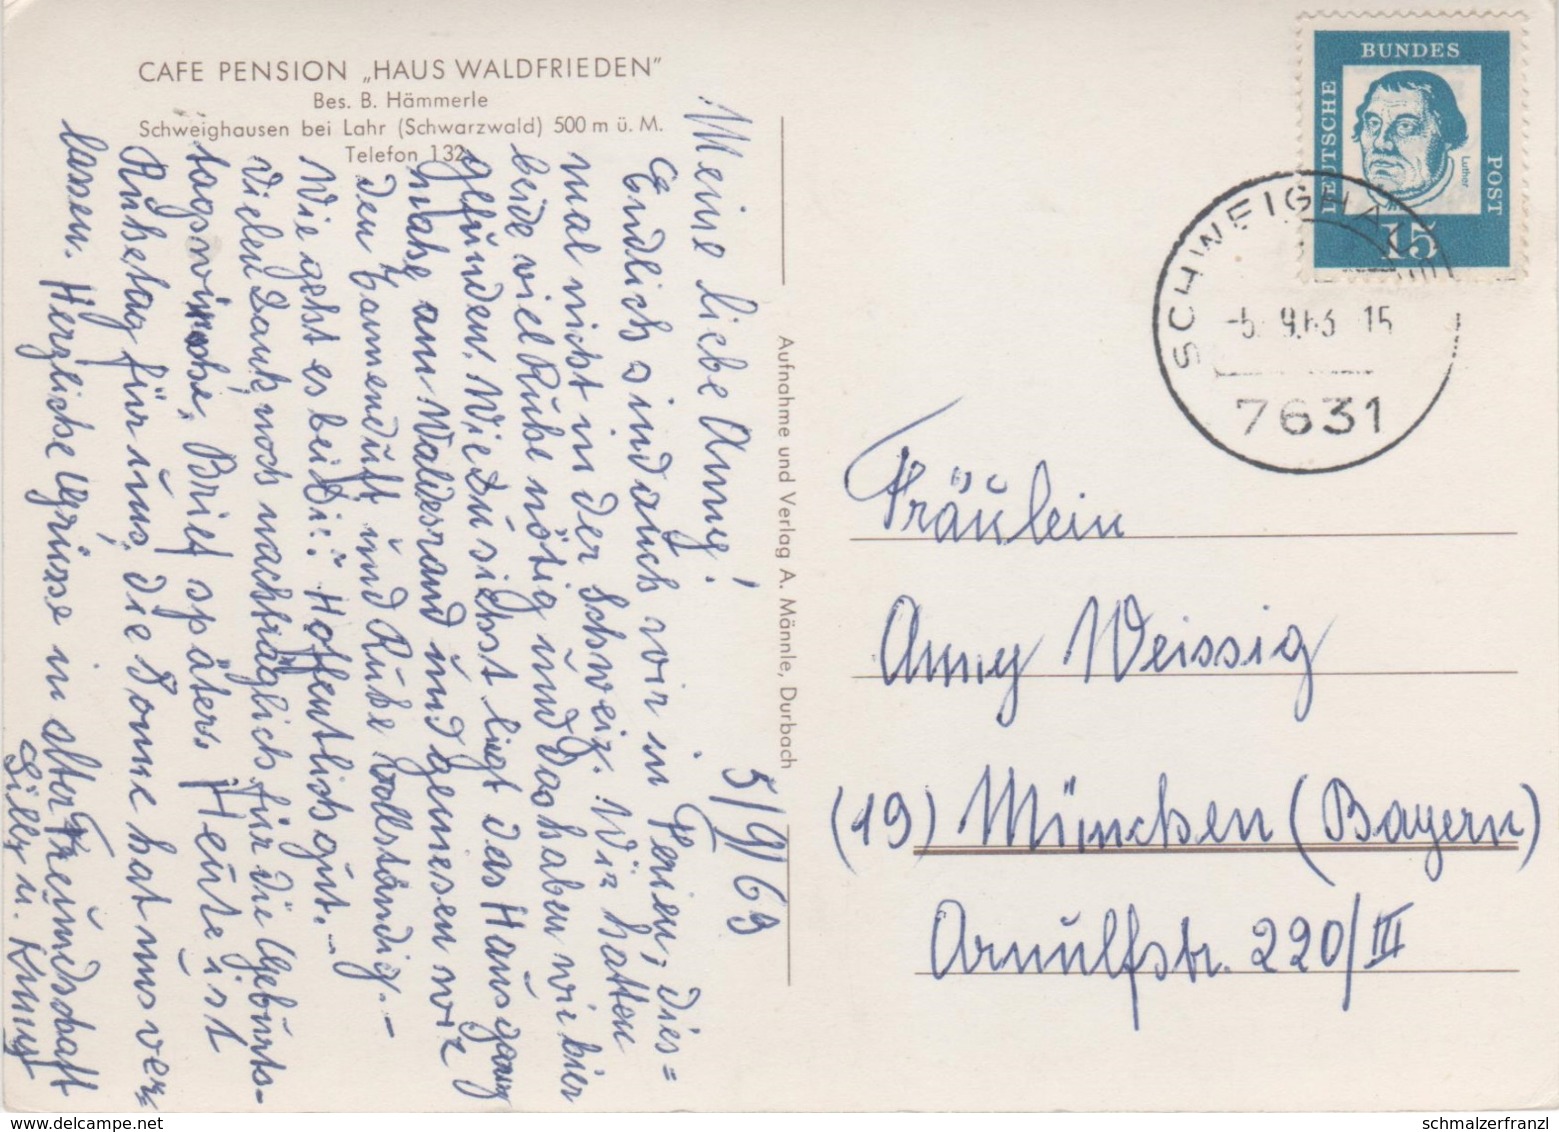 CAFE PENSION „HAUS WALDFRIEDEN"
Bes. B. Hämmerle
Schweighausen bei Lahr (Schwarzwald) 500 m ü. M.
Telefon 132
5/9/63
Meine liebe Anny!
Endlich sind auch wir in Ferien, dies=
mal nicht in der Schweiz. Wir hatten
beide viel Ruhe nötig und das haben wir hier
gefunden. Wie Du siehst liegt das Haus ganz
nahe am Waldesrand und geniesen wir
den Tannenduft und Ruhe vollständig. –
Wie geht es bei Dir? Hoffentlich gut. –
Vielen Dank noch nachträglich für die Geburts-
tagswünsche, Brief später. Heute ist
Ruhetag für uns, die Sonne hat uns ver=
lassen. Herzliche Grüsse in alter Freundschaft
Lilly u.
Aufnahme und Verlag A. Männle, Durbach
DEUTSCHE BUNDES POST
Luther
15
SCHWEIGHAU
-5. 9.63 15
7631
Fräulein
Anny Weissig
(19) München (Bayern)
Arnulfstr. 220/III
www.delcampe.net
schmalzerfranzl